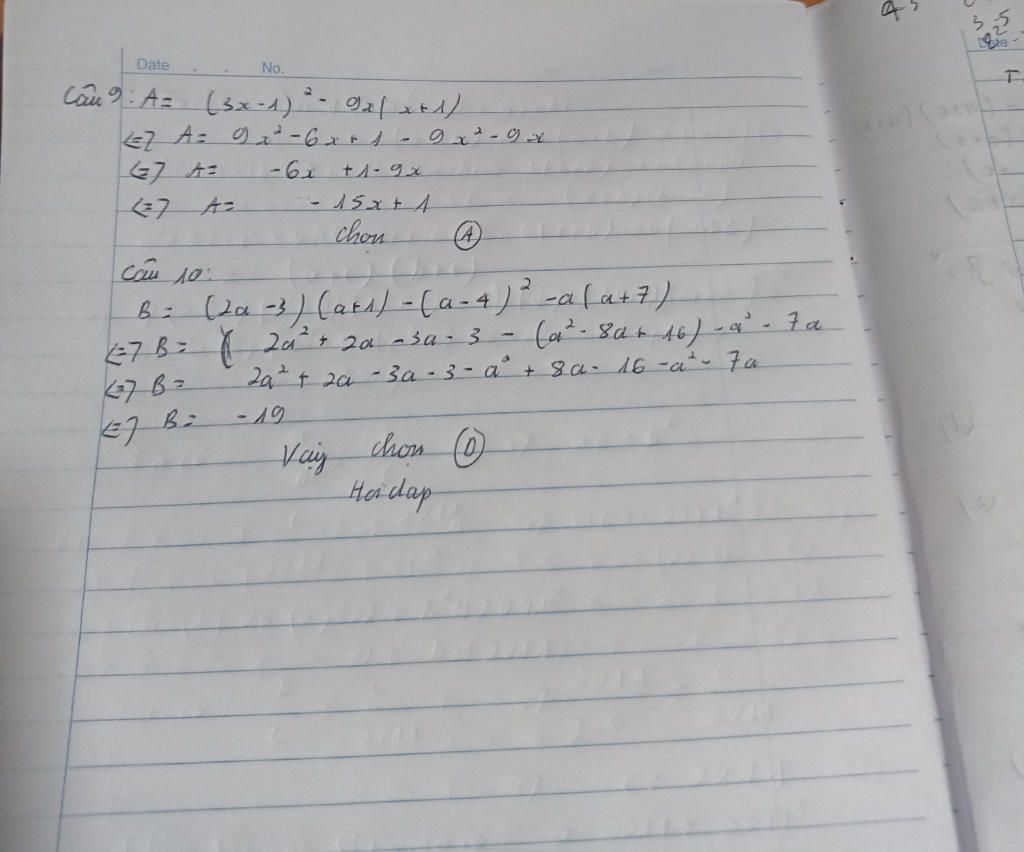 Date . . No.
Câu 9: A= (3x-1)² - 9x(x+1)
<=> A= 9x²-6x+1 - 9x²-9x
<=> A= -6x +1-9x
<=> A= -15x+1
chọn A
Câu 10:
B= (2a-3)(a+1)-(a-4)²-a(a+7)
<=> B= ( 2a²+2a-3a-3-(a²-8a+16)-a²-7a
<=> B= 2a²+2a-3a-3-a²+8a-16-a²-7a
<=> B= -19
Vậy chọn D
Hoidap